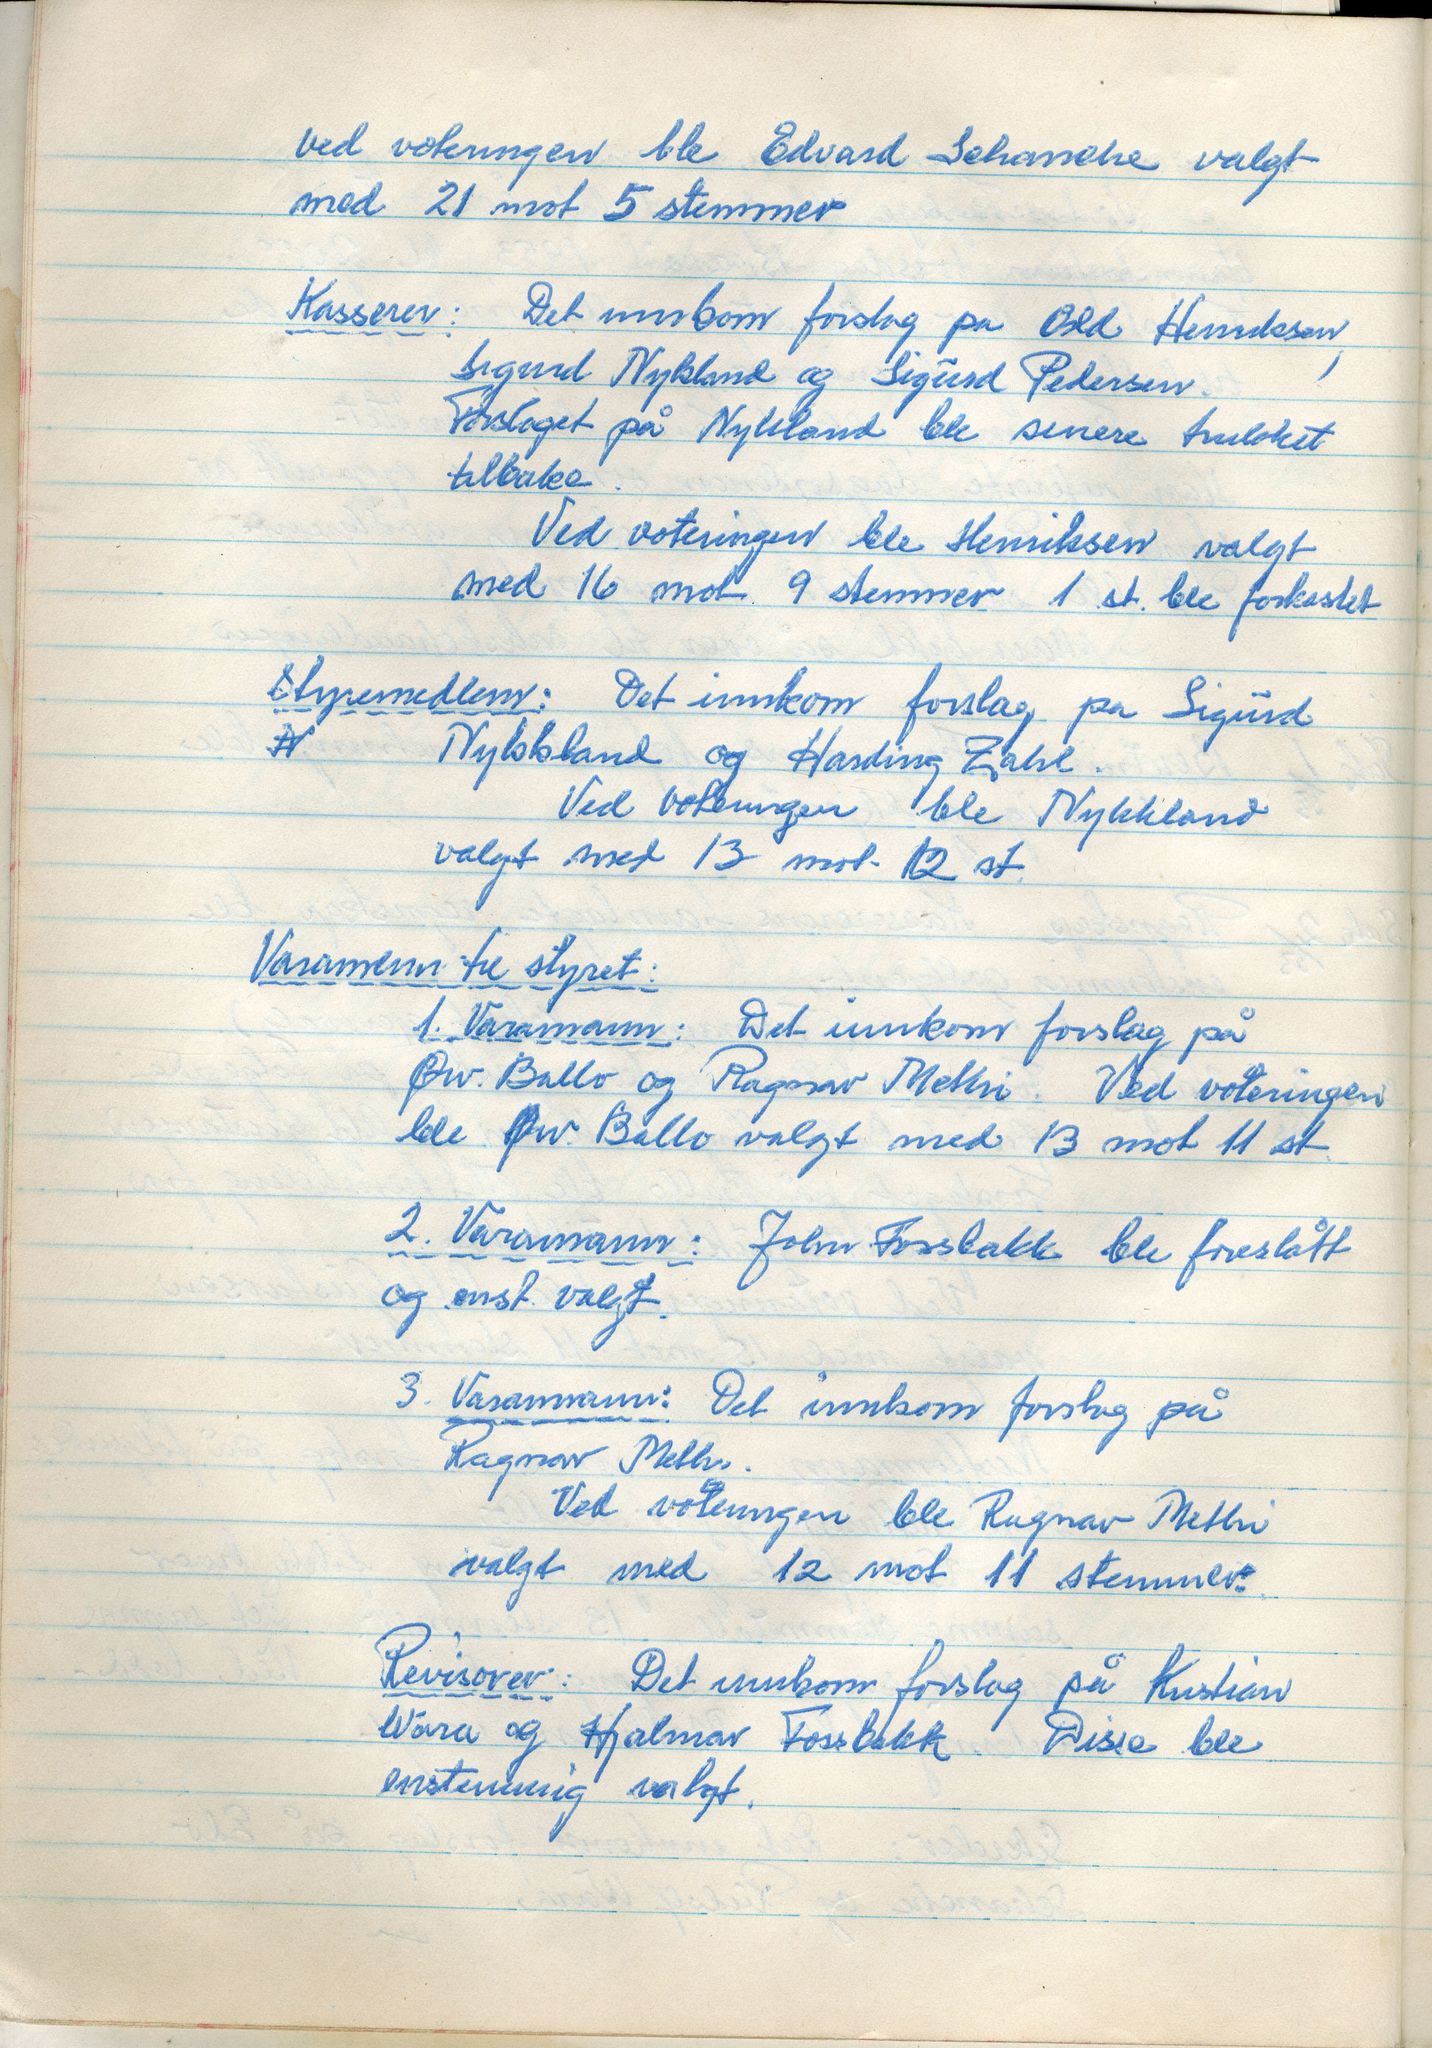 Ved voteringen ble Edvard Schanche valgt
med 21 mot 5 stemmer
Kasserer: Det innkom forslag på Odd Henriksen,
Sigurd Nykland og Sigurd Pedersen.
Forslaget på Nykland ble senere trukket
tilbake.
Ved voteringen ble Henriksen valgt
med 16 mot 9 stemmer 1 st. ble forkastet
Styremedlem: Det innkom forslag på Sigurd
Nykkland og Harding Zahl.
Ved voteringen ble Nykkland
valgt med 13 mot 12 st.
Varamenn til styret:
1. Varamann: Det innkom forslag på
Øiv. Ballo og Ragnar Methi. Ved voteringen
ble Øiv. Ballo valgt med 13 mot 11 st.
2. Varamann: John Fossbakk ble foreslått
og enst. valgt.
3. Varamann: Det innkom forslag på
Ragnar Methi.
Ved voteringen ble Ragnar Methi
valgt med 12 mot 11 stemmer.
Revisorer: Det innkom forslag på Kristian
Wara og Hjalmar Fossbakk. Disse ble
enstemmig valgt.